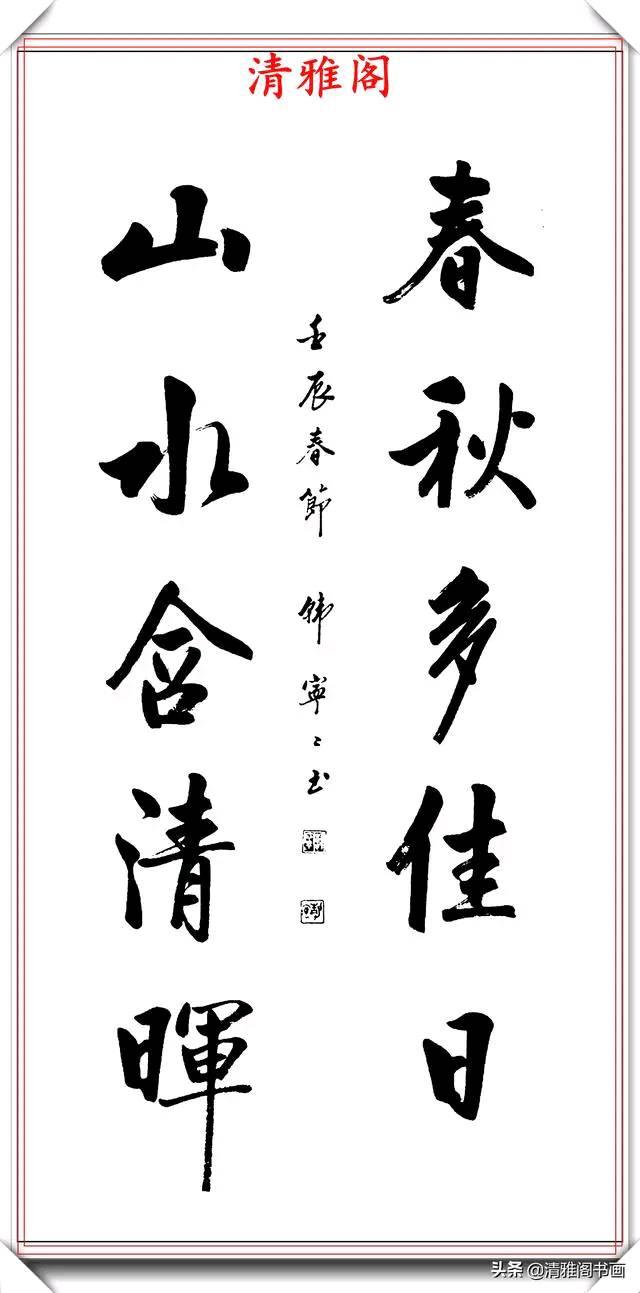 清雅阁
春秋多佳日
山水含清暉
壬辰春節 韩寧
头条@清雅阁书画